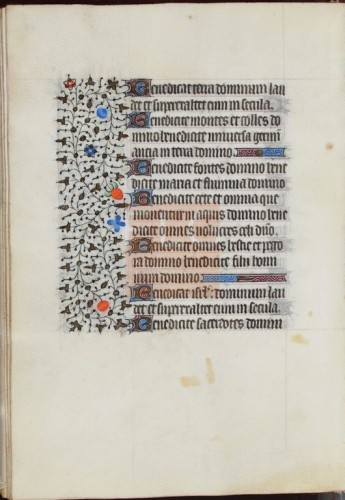 Benedicat terra dominum lau
det et superexaltet eum in secula.
Benedicite montes et colles do
mino benedicite universa germi
nancia in terra domino.
Benedicite fontes domino bene
dicite maria et flumina domino
Benedicite cete et omnia que
moventur in aquis domino bene
dicite omnes volucres celi dno.
Benedicite omnes bestie et peco
ra domino benedicite filii homi
num domino.
Benedicat isrl. dominum lau
det et superexaltet eum in secula.
Benedicite sacerdotes domini